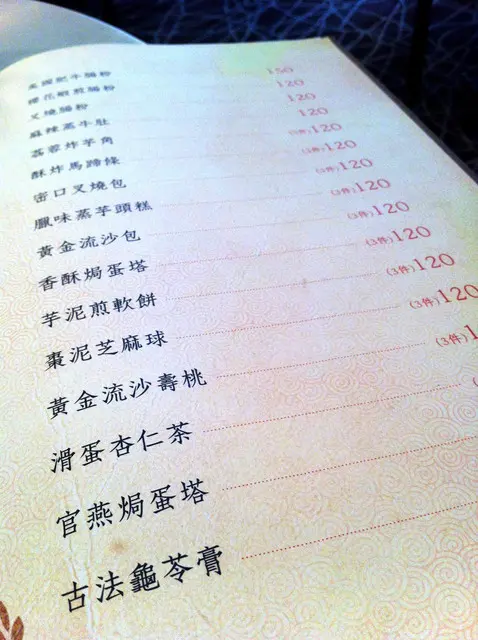 美國肥牛腸粉 150
櫻花蝦煎腸粉 120
叉燒腸粉 120
麻辣蒸牛肚 120
荔蓉炸芋角 (3件)120
酥炸馬蹄條 (3件)120
密口叉燒包 (3件)120
臘味蒸芋頭糕 120
黃金流沙包 (3件)120
香酥焗蛋塔 (3件)120
芋泥煎軟餅 (3件)120
棗泥芝麻球 (3件)120
黃金流沙壽桃 (3件)1
滑蛋杏仁茶
官燕焗蛋塔
古法龜苓膏